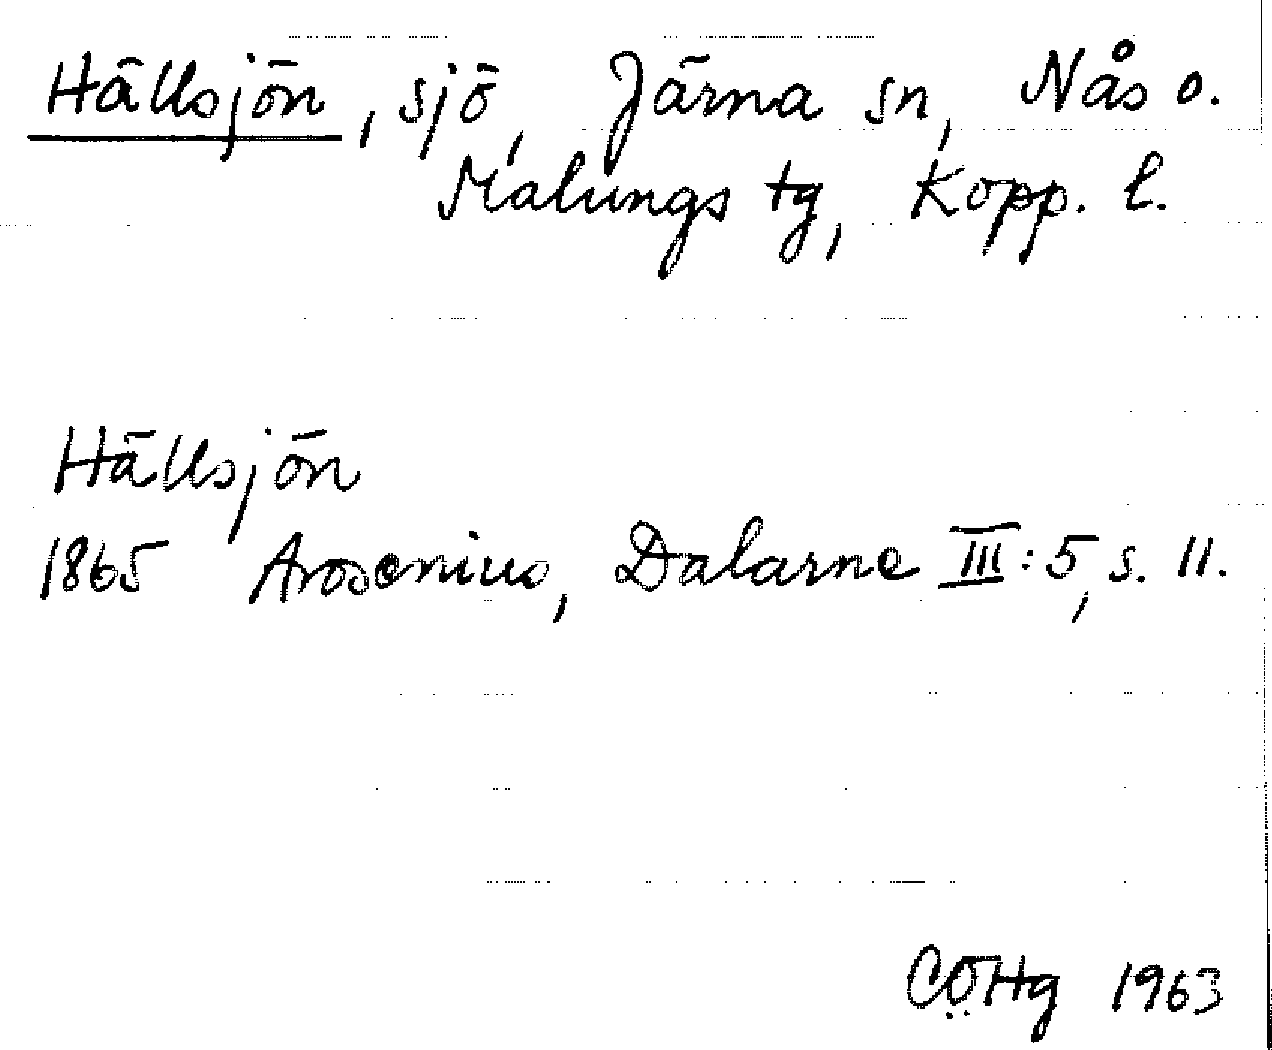 Hällsjön, sjö, Järna sn, Nås o.
Malungs tg, Kopp. l.
Hällsjön
1865 Arosenius, Dalarne III:5, s. 11.
CÖHg 1963